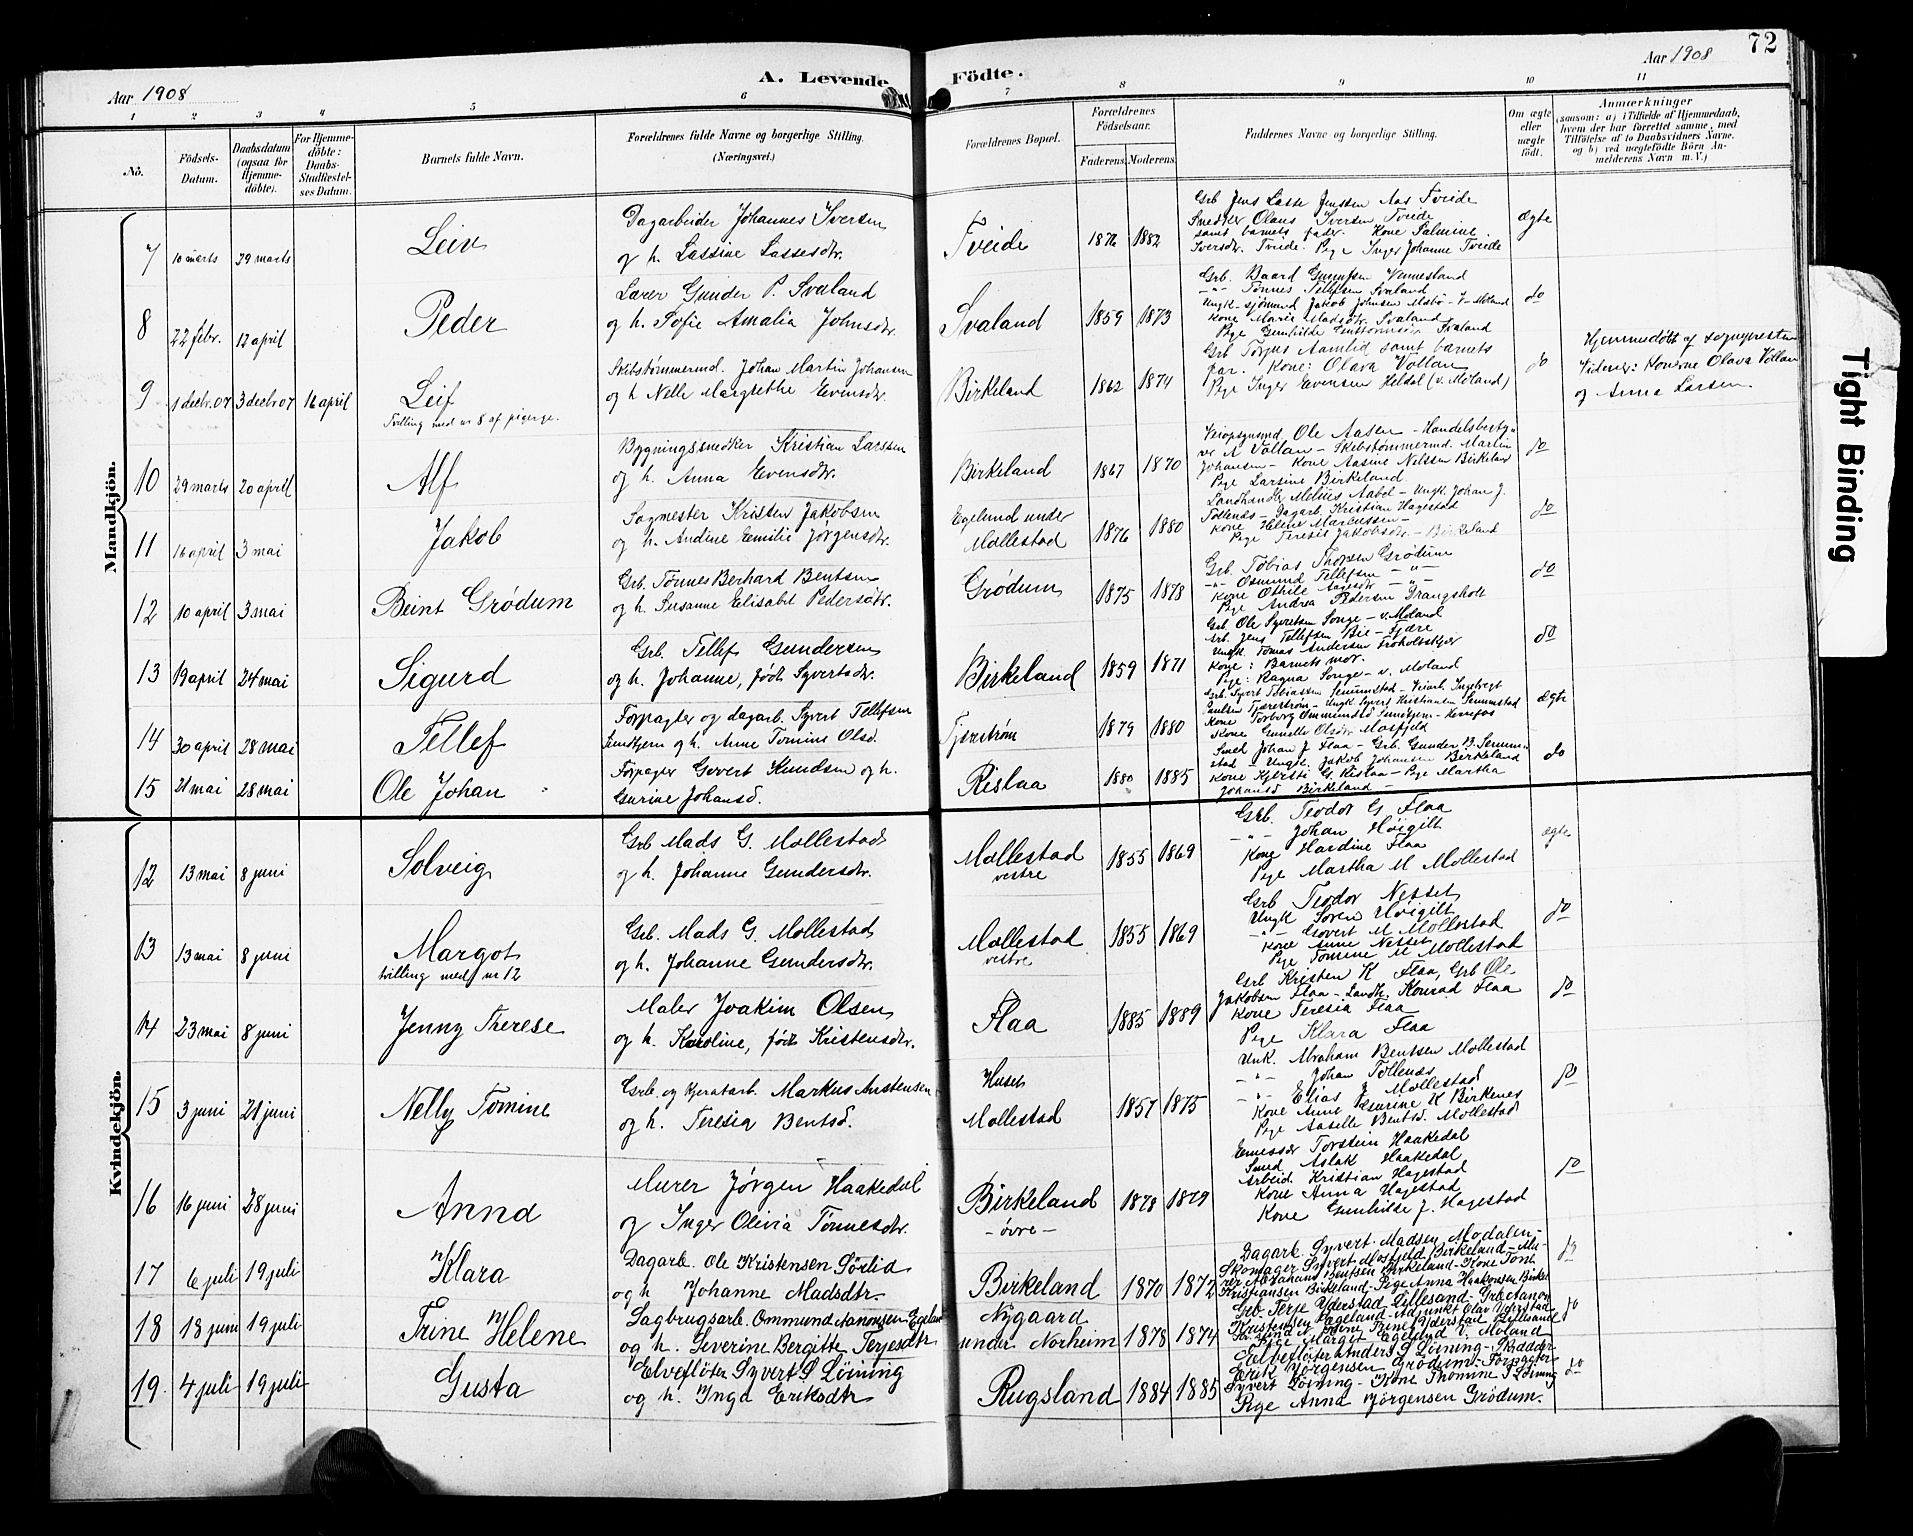 72
Aar 1908
A. Levende Födte.
Aar 1908
1 2 3 4 5 6 7 8 9 10 11
No.
Födsels-Datum.
Daabsdatum (ogsaa for Hjemmedöbte).
For Hjemmedöbte: Daabs-Stadfæstelses Datum.
Barnets fulde Navn.
Forældrenes fulde Navne og borgerlige Stilling.
(Næringsvei.)
Forældrenes Bopæl.
Forældrenes Födselsaar.
Faderens Moderens
Faddernes Navne og borgerlige Stilling.
Om ægte eller uægte födt.
Anmærkninger
(saasom: a) i Tilfælde af Hjemmedaab, hvem der har forrettet samme, med Tilföielse af to Daabsvidners Navne. og b) ved uægtefödte Börn Anmelderens Navn m. V.)
Mandkjön.
7 10 marts 29 marts Leiv
Dagarbeider Johannes Iversen
og h. Lassine Lassesdtr.
Tveide 1876 1882
Grb Jens Lasse Jenssen Aas Tveide
Snedker Olaus Iversen Tveide
samt barnets fader. Kone Salmine
Iversdtr. Tveide. Pige Inger Johanne Tveide
ægte
8 22 febr. 12 april Peder
Lærer Gunder P. Svaland
og h. Sofie Amalia Johnsdtr.
Svaland 1859 1873
Grb. Baard Vennesland
-"- Tønnes Tellefsen Svaland
Ungk-sjømand Jakob Johnsen Møland
Kone Marie Madsdtr. Svaland
Pige Gunhilde Svaland
do
9 1 decbr.07 3 decbr 07 16 april Leif
Tvilling med nr 8 af pigerne.
Skibstømmermd. Johan Martin Johansen
og h Nelle Margrethe Evensdtr.
Birkeland 1862 1874
Grb Torjus Aamlid samt barnets
far. Kone: Olava Vollan
Pige Inger Evensen Heldal (v. Moland)
do
Hjemmedøbt af sognepresten
Vidner: Konerne Olava Vollan
og Anna Larsen.
10 29 marts 20 april Alf
Bygningssnedker Kristian Larssen
og h. Anna Evensdtr.
Birkeland 1867 1870
Veiopsynsmd Ole Aasen - Handelsbesty-
rer A Vollan - Skibstømmermd. Martin
Johansen - Kone Aasine Nelssen Birkeland
Pige Larsine Birkeland
do
11 16 april 3 mai Jakob
Sagmester Kristen Jakobsen
og h. Andine Emilie Jørgensdtr.
Egelund under
Mollestad 1876 1880
Landhandler Melius Aabel - Ungk. Johan J.
Tollenes - Dagarb. Kristian Hagestad
Kone Helene Marcussen -
Pige Teresie Jakobsdtr. - Birkeland
do
12 10 april 3 mai Beint Grødum
Grb. Tønnes Berhard Bentsen
og h. Susanne Elisabet Pedersdtr.
Grødum 1875 1878
Grb. Tobias Thorsen Grødum
-"- Osmund Tellefsen -"-
Kone Othile Aasesdtr -"-
Pige Andrea Pedersen Drangsholt
do
13 19 april 24 mai Sigurd
Grb. Tellef Gundersen
og h. Johanne, født Syvertsdtr.
Birkeland 1859 1871
Grb Ole Syvertsen Songe - v. Moland
Arb. Jens Tellefsen Bie - Fjære
Ungk. Tomas Andersen
Kone: Barnets mor.
Pige: Ragna Songe - v. Moland
do
14 30 april 28 mai Tellef
Forpagter og dagarb. Syvert Tellefsen
og h. Anne Tomine Olsd.
Tjærstrøm 1879 1880
Grb. Syvert Tobiassen Senumstad - Veiarb. Ingebregt
Paulsen Tjærestrøm - Ungk. Syvert Kristiansen Senumstad
Kone Torborg
Kone Gunelle Olsdtr. Mosfjeld
ægte
15 21 mai 28 mai Ole Johan
Forpagter Govert Knudsen og h.
Gurine Johansd.
Rislaa 1880 1885
Smed Johan J Flaa - Grb. Gunder B. Senum-
stad - Ungk. Jakob Johansen Birkeland
Kone Kjersti G Rislaa - Pige Martha
Johansd Birkeland -
do
Kvindekjön.
12 13 mai 8 juni Solveig
Grb Mads G. Mollestad
og h. Johanne Gundersdtr.
Mollestad
vestre 1855 1869
Grb. Teodor G Flaa
-"- Johan Høigilt
Kone Hardine Flaa
Pige Martha M Mollestad
ægte
13 13 mai 8 juni Margot
tvilling med nr 12
Grb. Mads G. Mollestad
og h. Johanne Gundersdtr.
Mollestad
vestre 1855 1869
Grb Teodor Nesset
Ungk Søren Høigilt
-"- Govert M Mollestad
Kone Anne Nesset
Pige Tomine M Mollestad
do
14 23 mai 8 juni Jenny Therese
Maler Joakim Olsen
og h. Karoline, født Kristensdtr.
Flaa 1885 1889
Grb Kristen K Flaa, Grb Ole
Jakobsen Flaa - Landh. Konrad Flaa
Kone Teresia Flaa
Pige Klara Flaa
do
15 3 juni 21 juni Nelly Tomine
Grb. og kjøratarb. Markus Anstensen
og h. Teresia Bentsd.
Huset
Mollestad 1857 1875
Unk. Abraham Bentsen Mollestad
-"- Johan Tollenæs
-"- Elias J Mollestad
Kone Anne Gurine K Birkenes
Pige Aaselle Bentsd. Mollestad
do
16 16 juni 28 juni Anna
Murer Jørgen Haakedal
og Inger Olivia Tønnesdtr.
Birkeland
- øvre - 1878 1879
Torstein Haakedal
Smed Aslak Haakedal
Arbeid. Kristian Hagestad
Kone Anna Hagestad
Kone Gunhilde J. Hagestad
do
17 6 juli 19 juli Klara
Dagarb. Ole Kristensen Sørlia
og h Johanne Madsdtr.
Birkeland 1870 1872
Dagarb. Syvert Madsen Modalen,
Skomager Syvert Mosfjeld Birkeland - Mu-
rer Abraham Bentsen Birkeland - Kone Tone
Kristiansen Birkeland - Pige Anna Haakonsen Birkel.
do
18 18 juni 19 juli Trine Helene
Sagbrugsarb. Ommund Aanonsen Egeland
og h. Severine Bergitte Terjesdtr
Nygaard
under Norheim 1878 1874
Grb Terje Yderstad Lillesand - Grb Aanon
Kristensen Egeland - Adjunkt Olav Yderstad
Trine Yderstad Lillesand
Pige Margit Egeland V. Moland
do
19 4 juli 19 juli Gusta
Elvefløter Syvert S Løining
og h. Inga Eriksdtr
Rugsland 1884 1885
Elvefløter Anders S Løining - Skrædder
Erik Jørgensen Grødum - Forpagter
Syvert Løining - Kone Thomine S Løining
Pige Anna Jørgensen Grødum.
do
Tight Binding